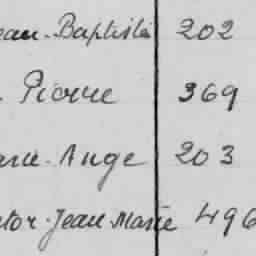 ean-Baptiste 202
Pierre 369
arie-Ange 203
ctor-Jean-Marie 496